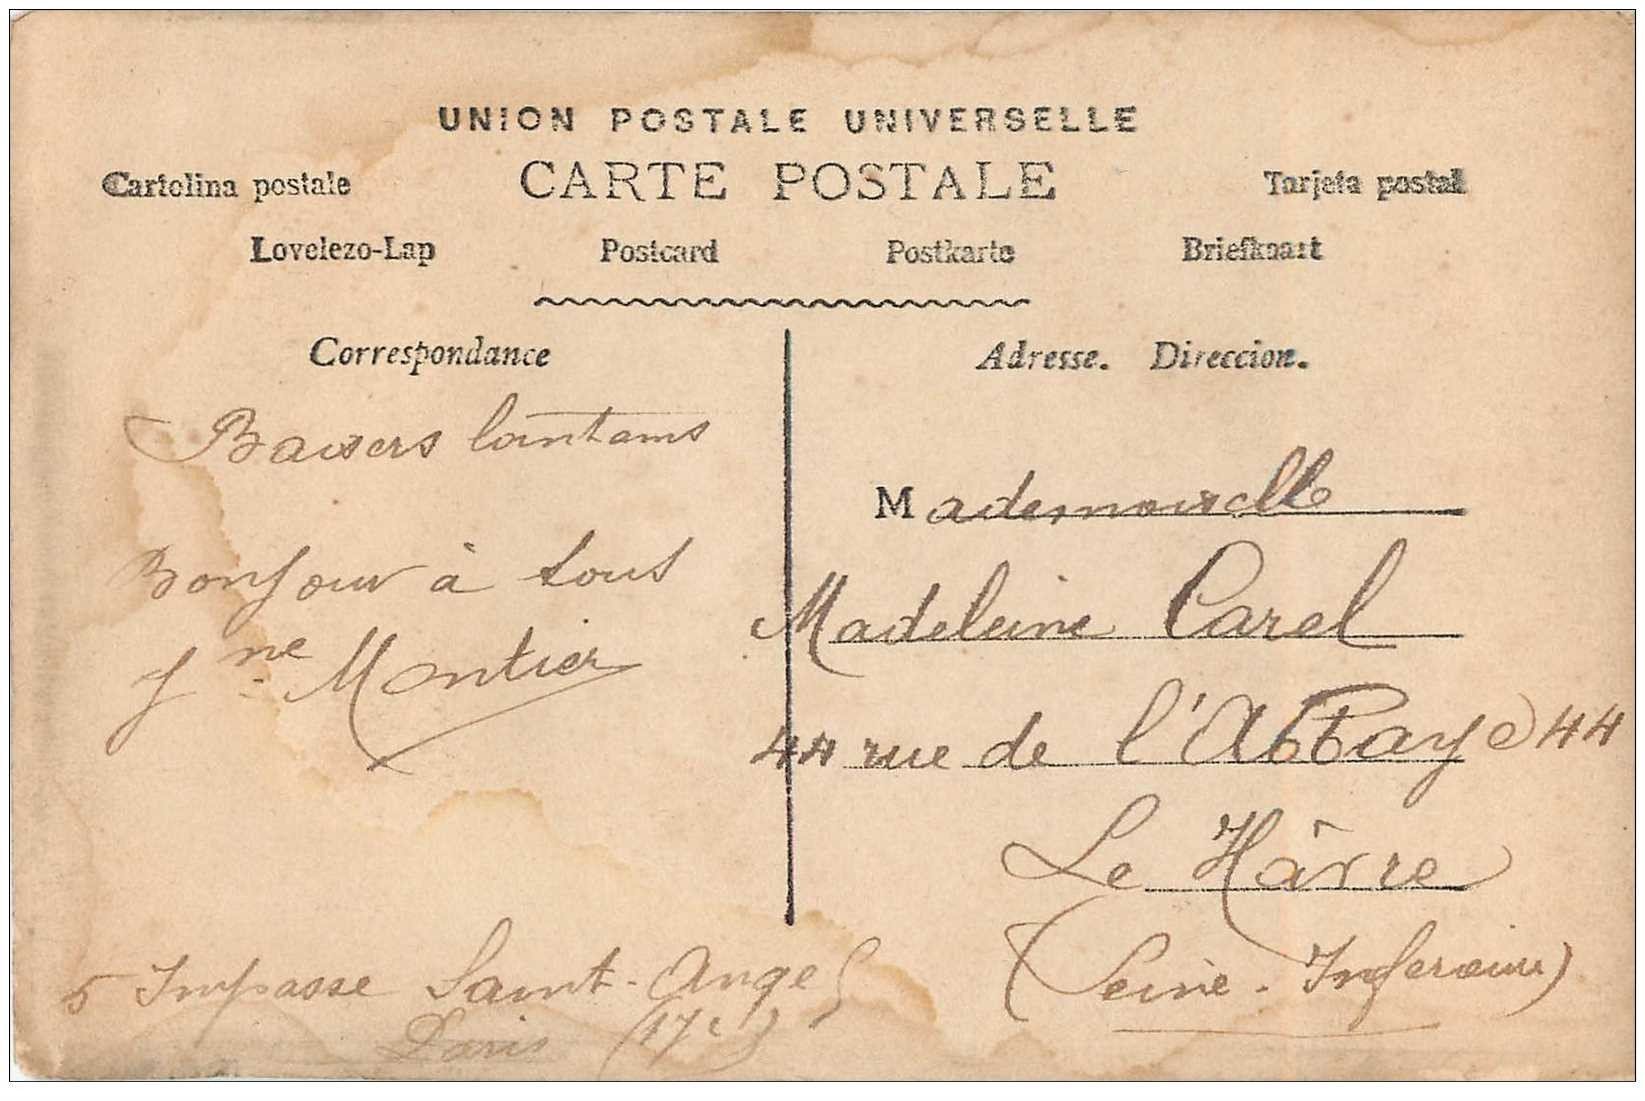 UNION POSTALE UNIVERSELLE
CARTE POSTALE
Cartolina postale
Tarjeta postal
Lovelezo-Lap Postcard Postkarte Briefkaart
Correspondance
Baisers lointains
Bonjour à tous
Jne Montier
5 Impasse Saint-Ange
Paris (17e)
Adresse. Direccion.
Mademoiselle
Madeleine Carel
44 rue de l'Abbaye 44
Le Hâvre
(Seine-Inférieure)